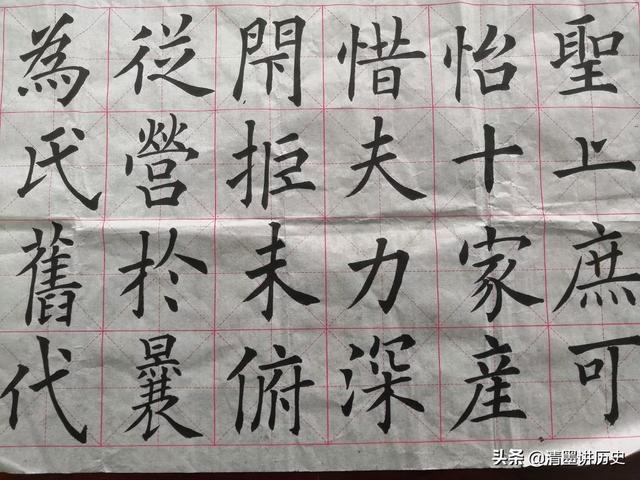 聖上庶可
怡十家産
惜夫力深
閇拒未俯
従營於曩
為氏舊代
头条 @清墨讲历史